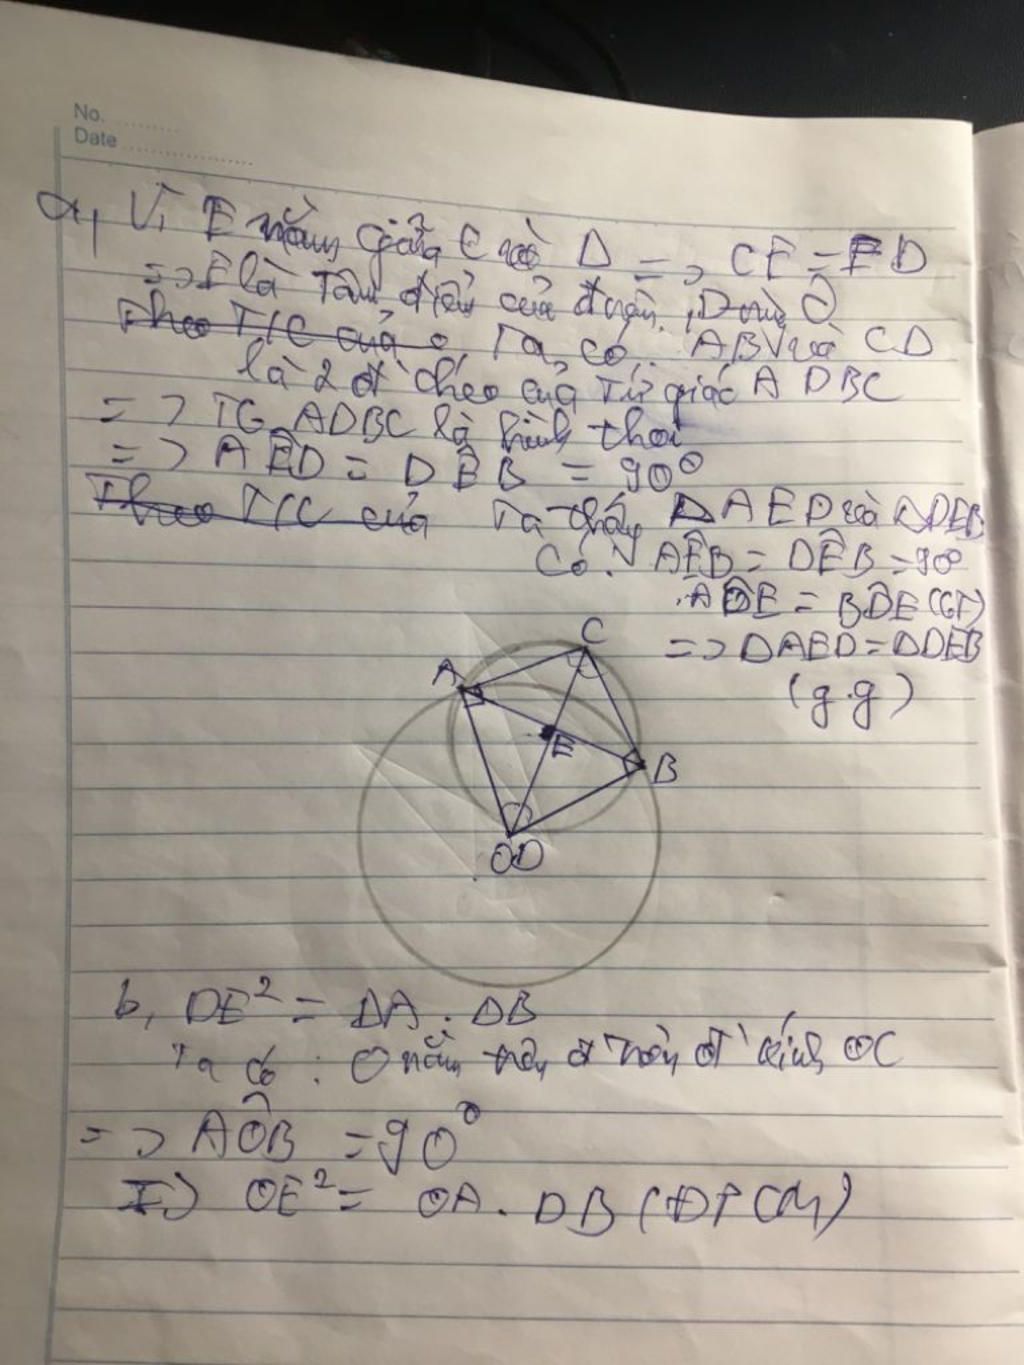 No.
Date
a, Vì E nằm giữa C và D => CE = ED
=> E là của D và
Theo T/C của Ta có: AB và CD
là 2 đ' chéo của Tứ giác A DBC
=> TG ADBC là hình thoi
=> AÊD = DÊB = 90°
Theo T/C của Ta thấy ΔAED và ΔDEB
Có: AÊB = DÊB = 90°
= BD̂E (GT)
=> ΔAED = ΔDEB
(g.g)
C
A
E
B
OD
b, DE² = DA . DB
Ta có : O nằm trên đ' kính OC
=> AÔB = 90°
=> OE² = OA . DB (ĐPCM)